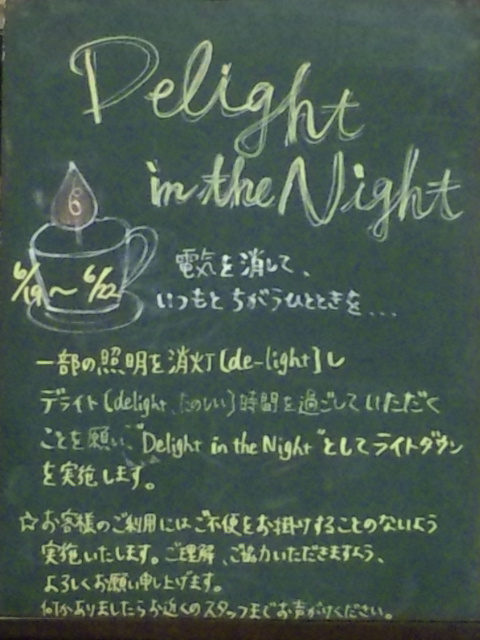 Delight
in the Night
6
6/19〜6/22
電気を消して、
いつもとちがうひとときを...
一部の照明を消灯[de-light]し
デライト[delight、たのしい]時間を過ごしていただく
ことを願い、"Delight in the Night"としてライトダウン
を実施します。
☆お客様のご利用にはご不便をお掛りすることのないよう
実施いたします。ご理解、ご協力いただきますよう、
よろしくお願い申し上げます。
何かありましたらお近くのスタッフまでお声がけください。